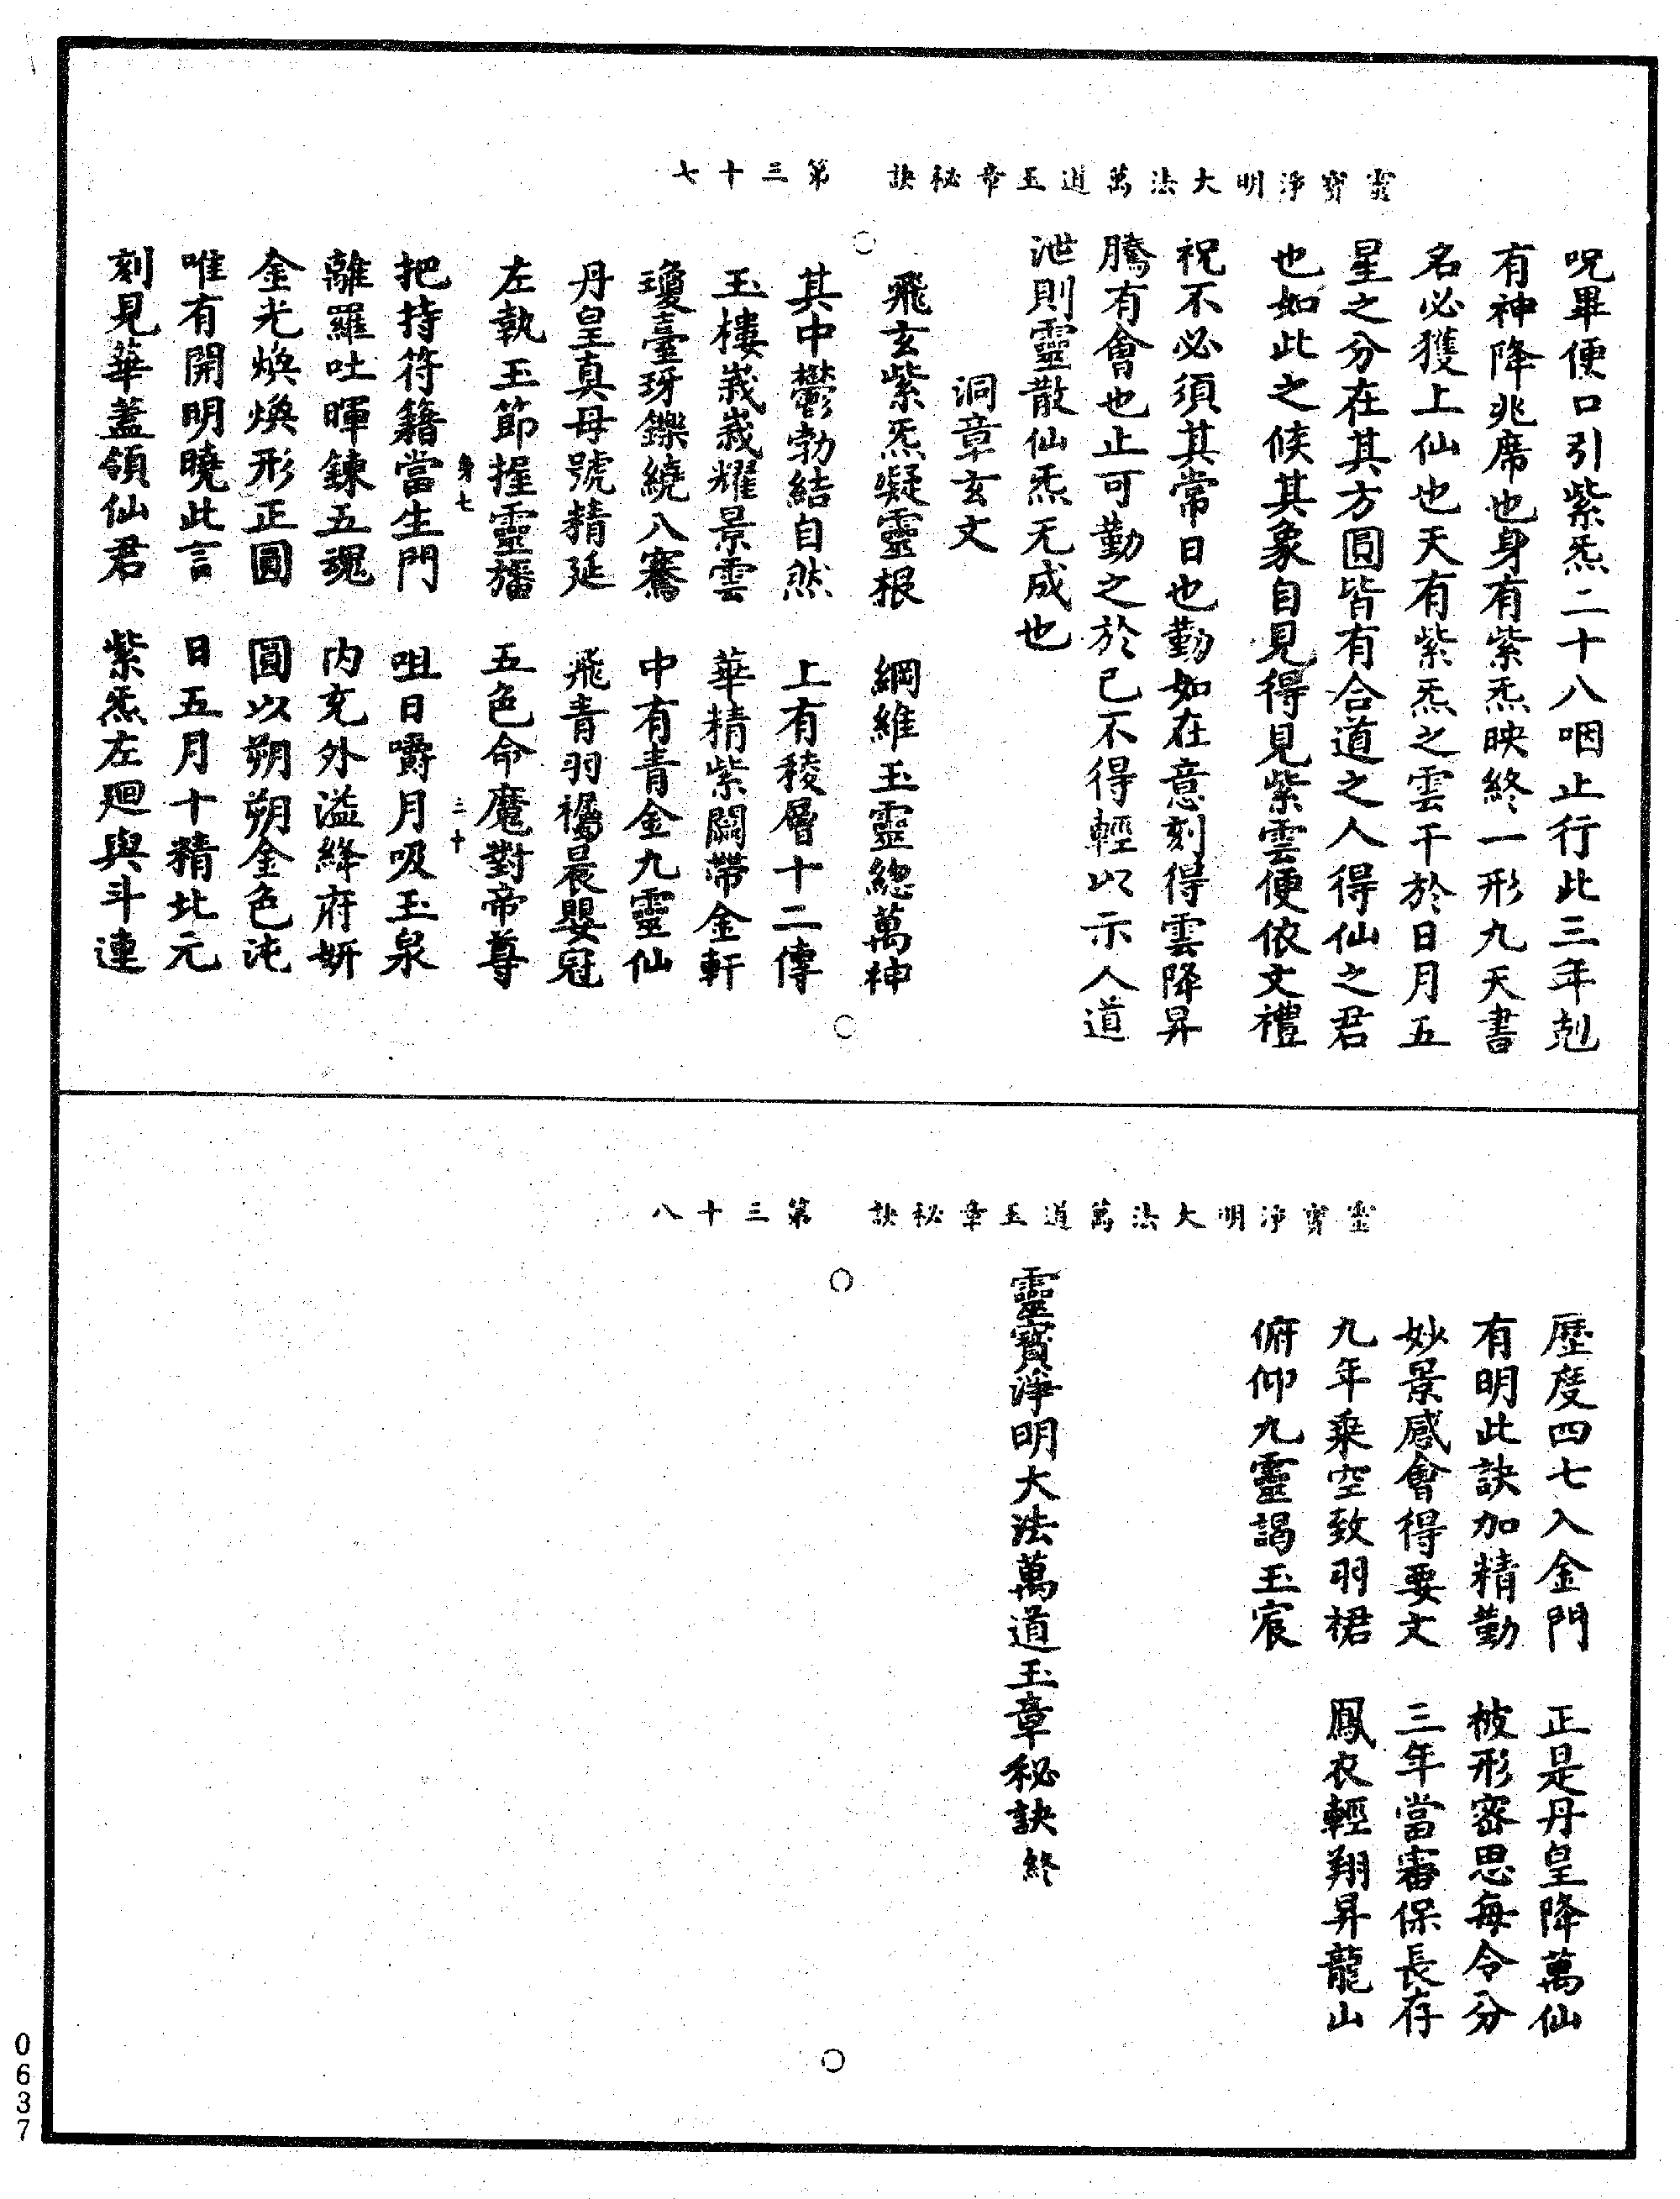 靈寶淨明大法萬道玉章秘訣　第三十七
呪畢便口引紫炁二十八咽止行此三年剋
有神降兆席也身有紫炁映終一形九天書
名必獲上仙也天有紫炁之雲干於日月五
星之分在其方圓皆有合道之人得仙之君
也如此之候其象自見得見紫雲便依文禮
祝不必須其常日也勤如在意刻得雲降昇
騰有會也止可勤之於已不得輕以示人道
泄則靈散仙炁无成也
洞章玄文
飛玄紫炁凝靈根　綱維玉靈總萬神
其中鬱勃結自然　上有稜層十二傳
玉樓峩峩耀景雲　華精紫闕帶金軒
瓊臺玡鑠繞八騫　中有青金九靈仙
丹皇真母號精延　飛青羽襡晨嬰冠
左執玉節握靈旛　五色命魔對帝尊
身七　三十
把持符籍當生門　咀日嚼月吸玉泉
離羅吐暉鍊五魂　内充外溢絳府妍
金光煥煥形正圓　圓以朔朔金色沌
唯有開明曉此言　日五月十精北元
刻見華蓋領仙君　紫炁左迴與斗連
靈寶淨明大法萬道玉章秘訣　第三十八
歷度四七入金門　正是丹皇降萬仙
有明此訣加精勤　被形密思每令分
妙景感會得要文　三年當審保長存
九年乘空致羽裙　鳳衣輕翔昇龍山
俯仰九靈謁玉宸
靈寶淨明大法萬道玉章秘訣終
0637